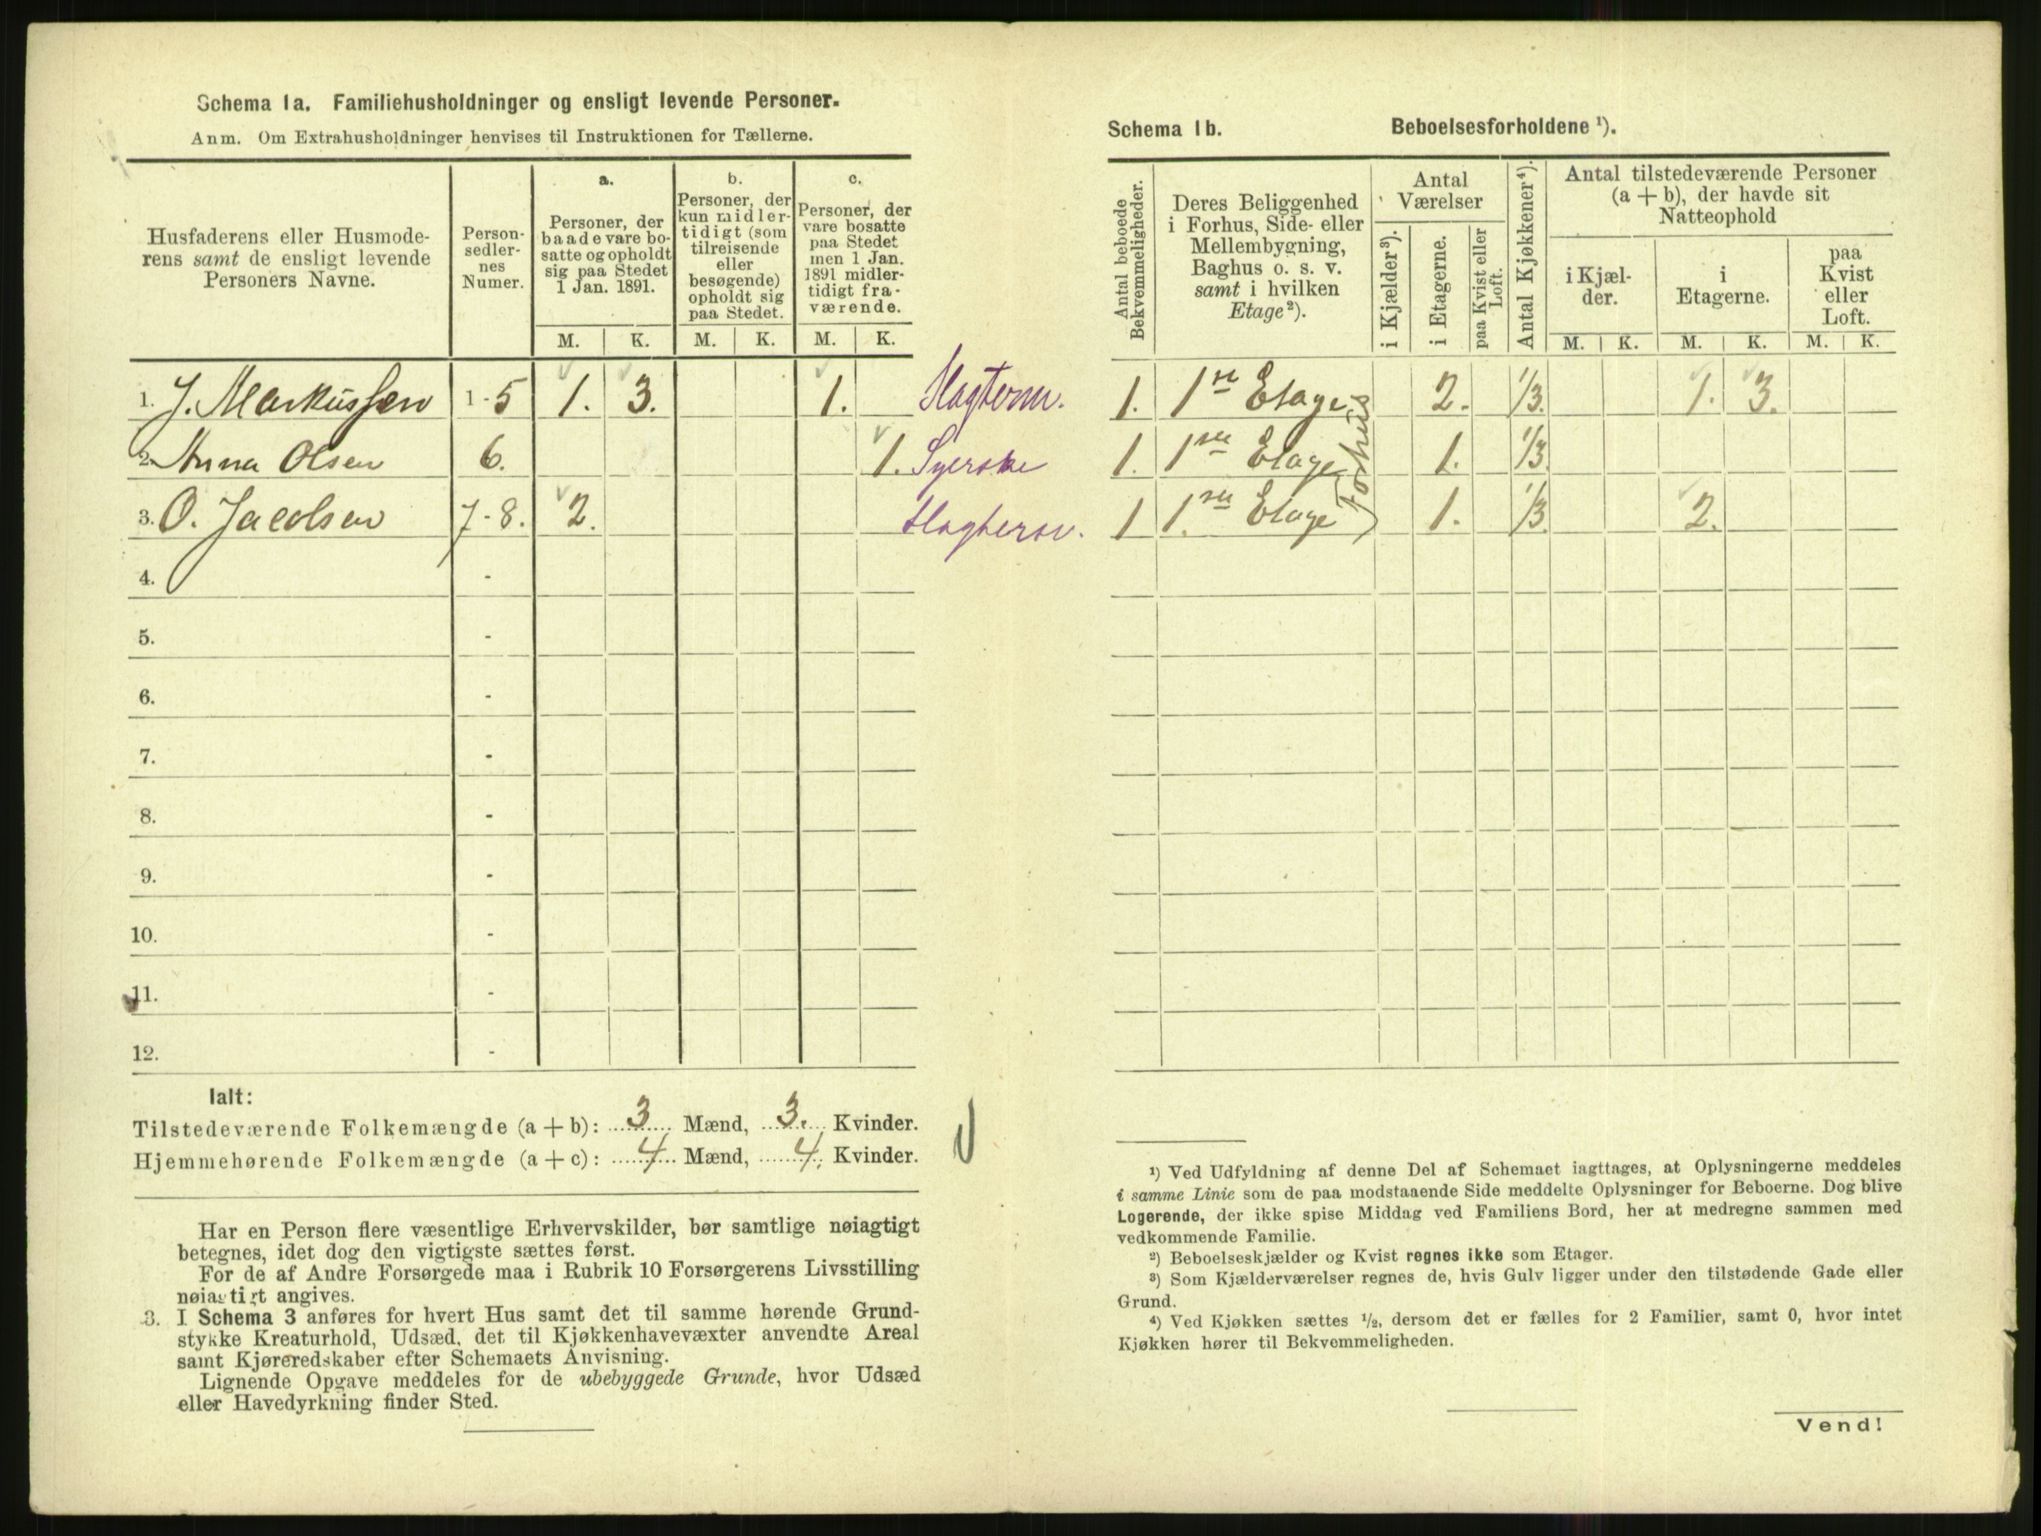 Schema 1a. Familiehusholdninger og ensligt levende Personer.
Anm. Om Extrahusholdninger henvises til Instruktionen for Tællerne.
Husfaderens eller Husmoderens samt de ensligt levende Personers Navne.
Person-sedler-nes Numer.
a. Personer, der baade vare bosatte og opholdt sig paa Stedet 1 Jan. 1891.
b. Personer, der kun midlertidigt (som tilreisende eller besøgende) opholdt sig paa Stedet.
c. Personer, der vare bosatte paa Stedet men 1 Jan. 1891 midlertidigt fraværende.
M. K. M. K. M. K.
1. J. Markussen 1-5 1. 3. 1.
2. Anna Olsen 6. 1. Syerske
3. O. Jacobsen 7-8. 2.
4. -
5. -
6. -
7. -
8. -
9. -
10. -
11. -
12. -
Ialt:
Tilstedeværende Folkemængde (a + b): 3 Mænd, 3. Kvinder.
Hjemmehørende Folkemængde (a + c): 4 Mænd, 4. Kvinder.
Har en Person flere væsentlige Erhvervskilder, bør samtlige nøiagtigt
betegnes, idet dog den vigtigste sættes først.
For de af Andre Forsørgede maa i Rubrik 10 Forsørgerens Livsstilling
nøiagtigt angives.
3. I Schema 3 anføres for hvert Hus samt det til samme hørende Grund-
stykke Kreaturhold, Udsæd, det til Kjøkkenhavevæxter anvendte Areal
samt Kjøreredskaber efter Schemaets Anvisning.
Lignende Opgave meddeles for de ubebyggede Grunde, hvor Udsæd
eller Havedyrkning finder Sted.
Schema 1b. Beboelsesforholdene ¹).
Antal beboede Bekvemmeligheder.
Deres Beliggenhed i Forhus, Side- eller Mellembygning, Baghus o. s. v. samt i hvilken Etage ²).
Antal Værelser
i Kjælder ³).
i Etagerne.
paa Kvist eller Loft.
Antal Kjøkkener ⁴).
Antal tilstedeværende Personer (a + b), der havde sit Natteophold
i Kjælder.
i Etagerne.
paa Kvist eller Loft.
M. K. M. K. M. K.
1. 1ste Etage 2. 1/3. 1. 3.
1. 1ste Etage 1. 1/3.
1 1. ste Etage 1. 1/3. 2.
Forhus
¹) Ved Udfyldning af denne Del af Schemaet iagttages, at Oplysningerne meddeles
i samme Linie som de paa modstaaende Side meddelte Oplysninger for Beboerne. Dog blive
Logerende, der ikke spise Middag ved Familiens Bord, her at medregne sammen med
vedkommende Familie.
²) Beboelseskjælder og Kvist regnes ikke som Etager.
³) Som Kjælderværelser regnes de, hvis Gulv ligger under den tilstødende Gade eller
Grund.
⁴) Ved Kjøkken sættes ½, dersom det er fælles for 2 Familier, samt 0, hvor intet
Kjøkken hører til Bekvemmeligheden.
Vend!